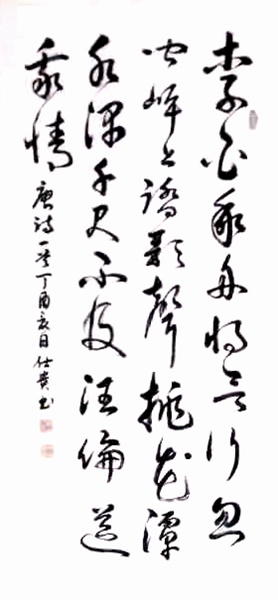 李白乘舟将欲行忽
闻岸上踏歌声桃花潭
水深千尺不及汪倫送
我情
唐诗一首丁酉亥日仕贵书